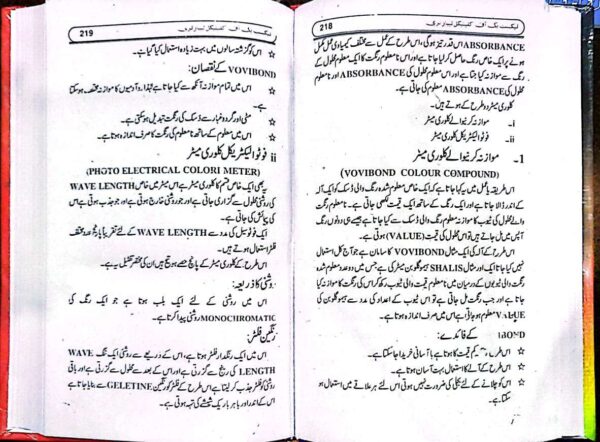 218
ٹیکسٹ بک آف کلینیکل لیبارٹری
ABSORBANCE اس قدر تیز ہوگی، اس طرح کے عمل سے مختلف کیمیاوی عمل مکمل
کرنے پر ایک خاص رنگ حاصل کر لیا جاتا ہے اور اس نامعلوم رنگت کا ایک معلوم محلول کی
رنگت سے موازنہ کیا جاتا ہے اور اس معلوم محلول کی ABSORBANCE اور نامعلوم
محلول کی ABSORBANCE معلوم کی جاتی ہے۔
کلوری میٹر دو طرح کے ہوتے ہیں۔
i۔ موازنہ کرنیوالے کلوری میٹر
ii۔ فوٹو الیکٹریکل کلوری میٹر
1۔ موازنہ کرنیوالے کلوری میٹر
(VOVIBOND COLOUR COMPOUND)
اس طریقہ یا عمل میں یہ کیا جاتا ہے کہ ایک خاص تیار شدہ رنگ والی ڈسک کو ایک آلہ
کے اندر ڈالا جاتا ہے اور ایک رنگ کے ساتھ ایک قیمت لکھی جاتی ہے۔ نامعلوم رنگت
والے محلول کی ٹیوب کا موازنہ معلوم رنگ والی ڈسک سے کیا جاتا ہے جیسے ہی دونوں رنگ
آپس میں مل جاتے ہیں تو اس محلول کی قیمت (VALUE) ہوتی ہے۔
اس طرح کے آلہ کی ایک مثال VOVIBOND کا سامان ہے جو آج کل استعمال
نہیں کیا جاتا ایک اور مثال SHALIS ہیموگلوبن میٹر کی ہے جس میں دو عدد معلوم شدہ
رنگت والی ٹیوبوں کے درمیان میں نامعلوم رنگت والی ٹیوب رکھ کر اس کی رنگت کا موازنہ کیا
جاتا ہے اور جب رنگ مل جاتی ہے تو اس ٹیوب کے اعداد کی مدد سے ہیموگلوبن کی
VALUE معلوم ہو جاتی ہے اس میں صرف اندازہ ہوتا ہے۔
IBOND کے فائدے:
☆ اس طرح کم قیمت کا ہوتا ہے با آسانی خریدا جا سکتا ہے۔
☆ اس طرح کے آلے کا استعمال بہت آسان ہوتا ہے۔
☆ اس کو چلانے کے لئے بجلی کی ضرورت نہیں ہوتی اس لئے ہر علاقے میں استعمال ہو
سکتا ہے۔
219
ٹیکسٹ بک آف کلینیکل لیبارٹری
☆ اس کو گزشتہ سالوں میں بہت زیادہ استعمال کیا گیا ہے۔
VOVIBOND کے نقصان:
☆ اس میں تمام موازنہ آنکھ سے کیا جاتا ہے لہٰذا دو آدمیوں کا موازنہ مختلف ہو سکتا
ہے۔
☆ مٹی اور گرد و غبار سے ڈسک کی رنگت تبدیل ہو سکتی ہے۔
☆ اس میں معلوم کے ساتھ نامعلوم کی رنگت کا صرف اندازہ ہوتا ہے۔
ii فوٹو الیکٹریکل کلوری میٹر
(PHOTO ELECTRICAL COLORI METER)
یہ بھی ایک خاص قسم کا کلوری میٹر ہے اس میں خاص WAVE LENGTH
کی روشنی محلول سے گزاری جاتی ہے اور جو روشنی خارج ہوتی ہے اور جو جذب ہوتی ہے اس
کی پیمائش کی جاتی ہے۔
ایک فوٹو سیل کی مدد سے WAVE LENGTH کے لئے تقریباً پانچ عدد مختلف
فلٹر استعمال ہوتے ہیں۔
اس طرح کے کلوری میٹر کے پانچ حصے ہوتے ہیں ان کی مختصر تفصیل یہ ہے۔
روشنی کا ذریعہ:
اس میں روشنی کے لئے ایک بلب ہوتا ہے جو ایک رنگ کی
MONOCHROMATIC روشنی پیدا کرتا ہے۔
رنگین فلٹر:
اس میں ایک رنگدار فلٹر ہوتا ہے، اس کے ذریعے سے روشنی ایک تنگ WAVE
LENGTH کی رینج سے گزرتی ہے اور اس کے بعد سے محلول سے گزرتی ہے اور باقی
روشنی کو فلٹر جذب کر لیتا ہے اس طرح کے فلٹر کو GELETINE سے بنایا جاتا ہے
اس کے اندر اور باہر باریک شیشے کی تہہ ہوتی ہے۔